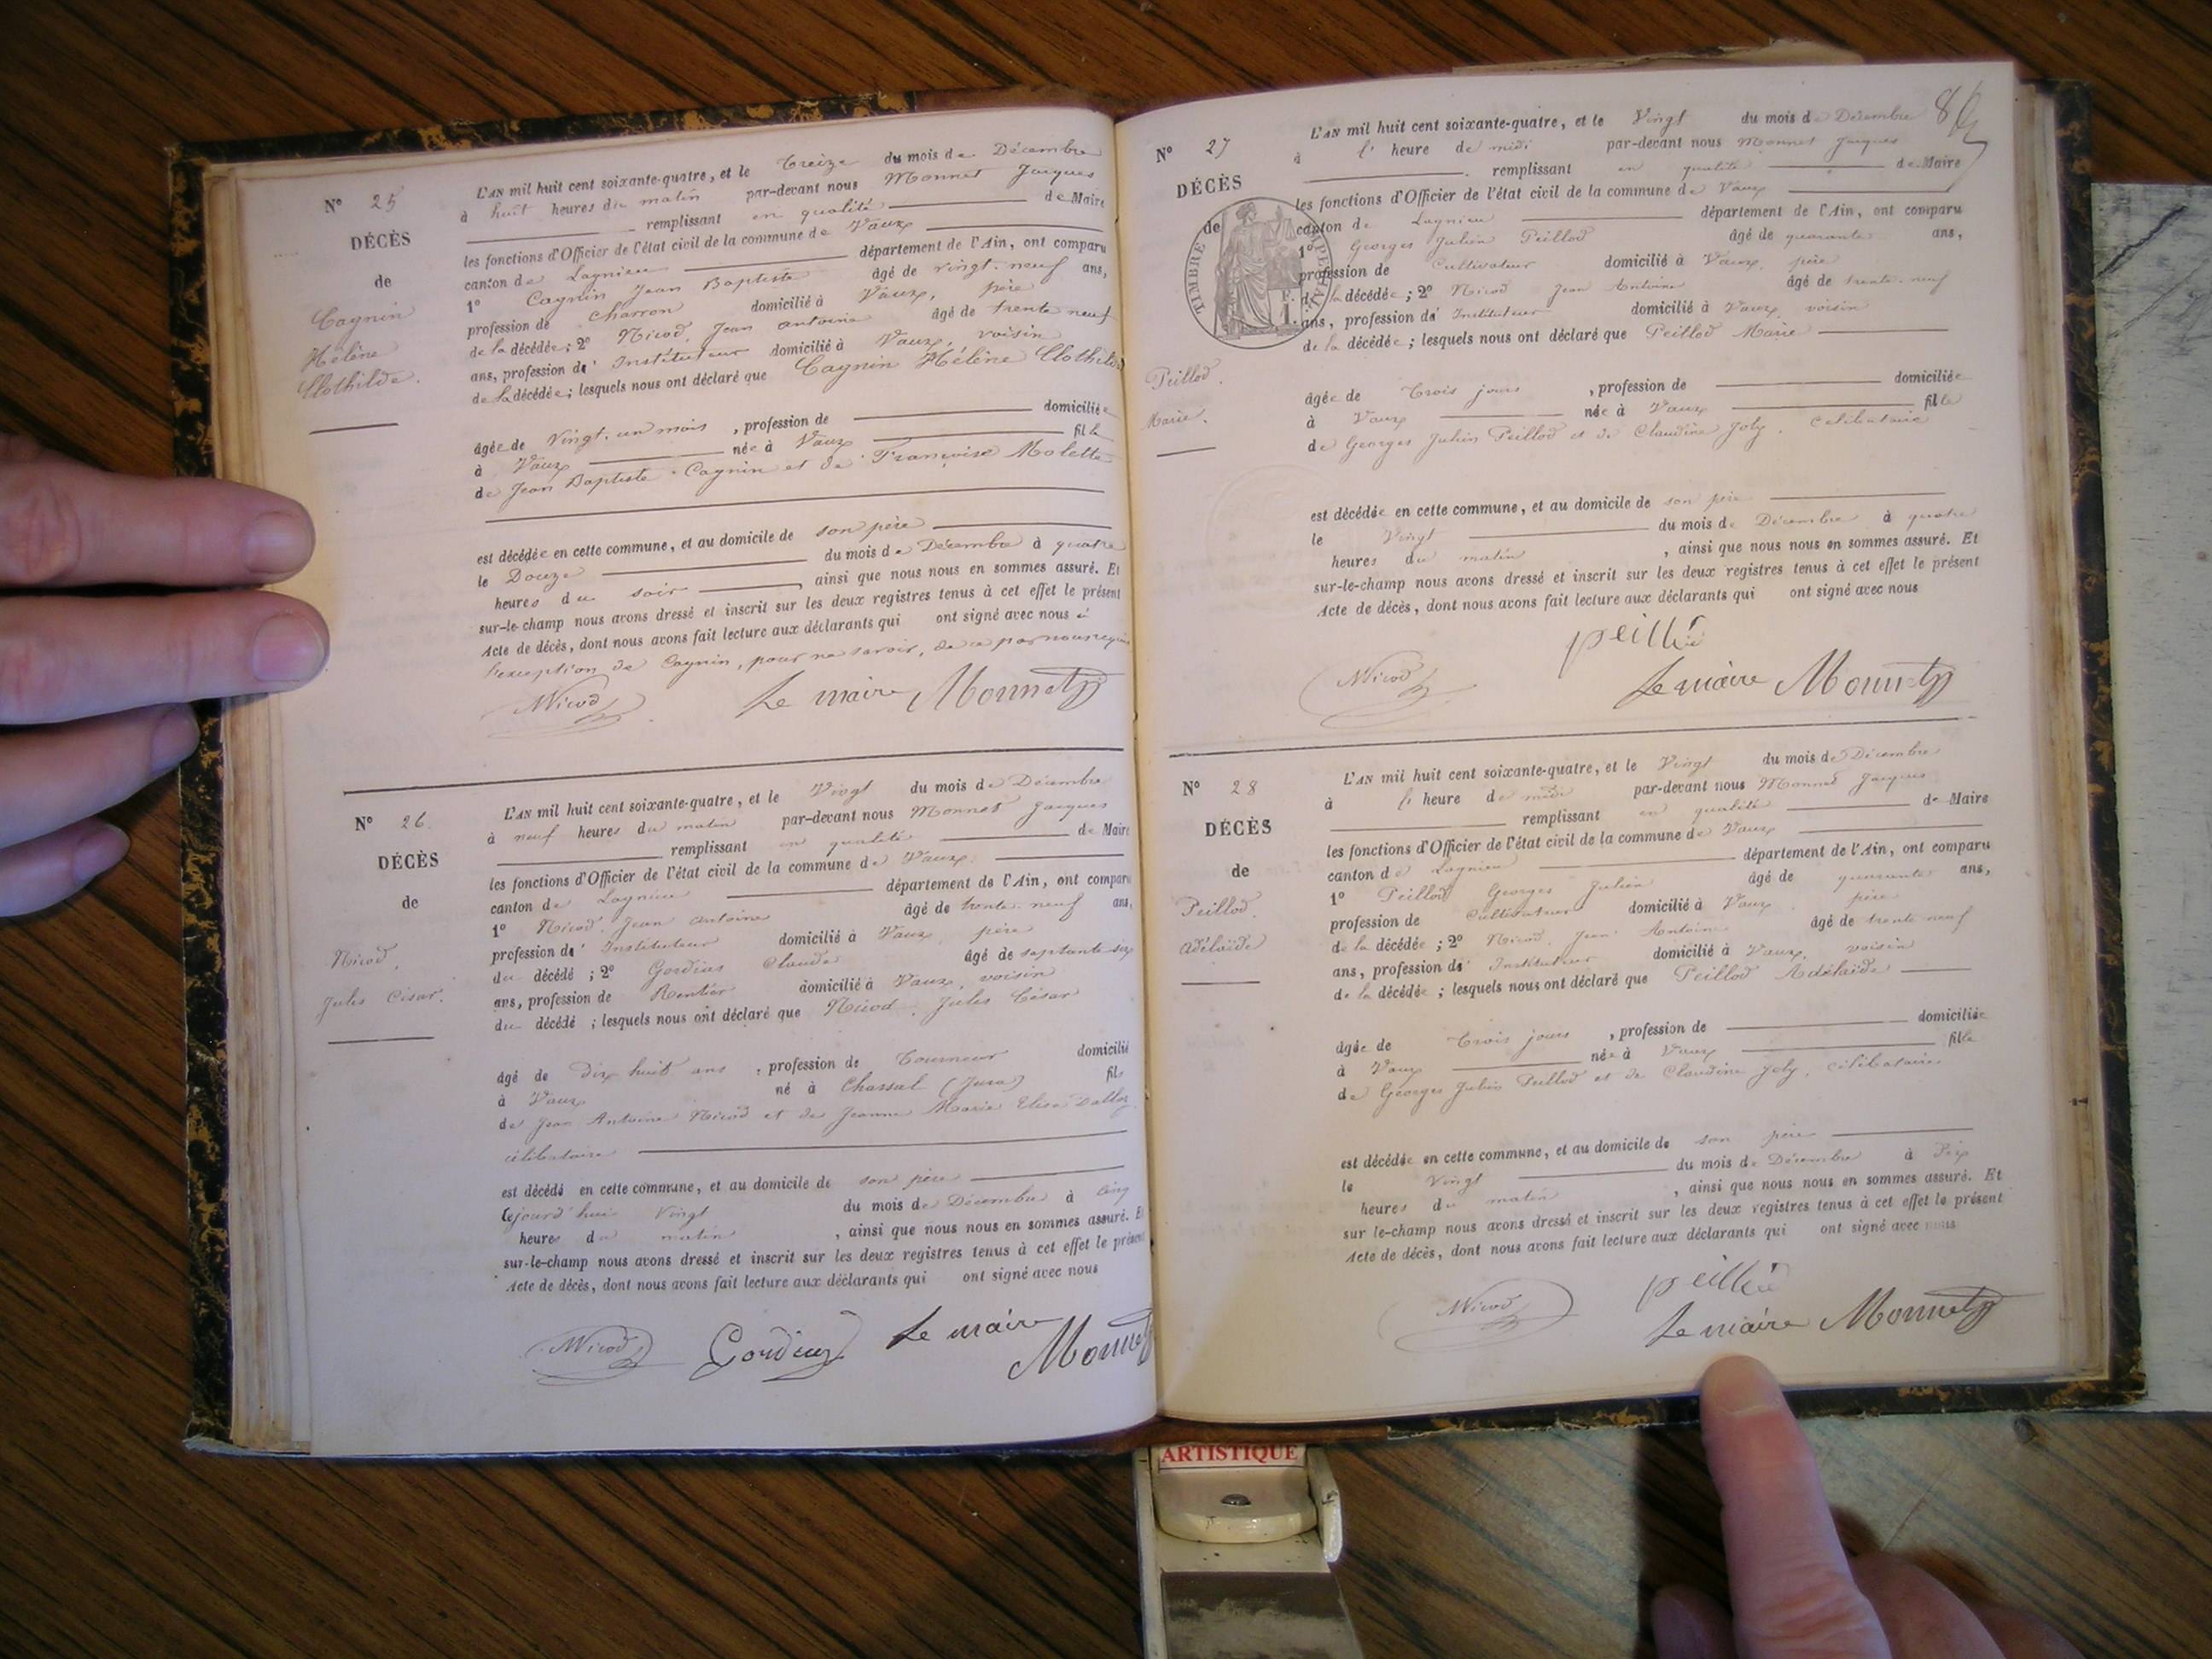 N° 25
DÉCÈS
de
Cagnin
Hélène
Clothilde.
L'AN mil huit cent soixante-quatre, et le Treize du mois de Décembre
à huit heures du matin par-devant nous Monnet Jacques
remplissant en qualité de Maire
les fonctions d'Officier de l'état civil de la commune de Vaux
canton de Lagnieu département de l'Ain, ont comparu
1° Cagnin Jean Baptiste âgé de vingt-neuf ans,
profession de charron domicilié à Vaux, père
de la décédée; 2° Nicod, Jean antoine âgé de trente neuf
ans, profession d' Instituteur domicilié à Vaux, voisin
de la décédée; lesquels nous ont déclaré que Cagnin Hélène Clothilde
âgée de Vingt-un mois, profession de domiciliée
à Vaux née à Vaux fille
de Jean Baptiste Cagnin et de Françoise Molette
est décédée en cette commune, et au domicile de son père
le Douze du mois de Décembre à quatre
heures du soir, ainsi que nous nous en sommes assuré. Et
sur-le-champ nous avons dressé et inscrit sur les deux registres tenus à cet effet le présent
Acte de décès, dont nous avons fait lecture aux déclarants qui ont signé avec nous à
l'exception de Cagnin, pour ne savoir, de ce par nous requis
Nicod Le maire Monnet
N° 26.
DÉCÈS
de
Nicod,
Jules César.
L'AN mil huit cent soixante-quatre, et le Vingt du mois de Décembre
à neuf heures du matin par-devant nous Monnet Jacques
remplissant en qualité de Maire
les fonctions d'Officier de l'état civil de la commune de Vaux
canton de Lagnieu département de l'Ain, ont comparu
1° Nicod. Jean antoine âgé de trente-neuf ans,
profession d' Instituteur domicilié à Vaux, père
du décédé; 2° Gordius Claude âgé de septante-six
ans, profession de Rentier domicilié à Vaux, voisin
du décédé; lesquels nous ont déclaré que Nicod. Jules César
âgé de dix huit ans, profession de Tourneur domicilié
à Vaux né à Chassal (Jura) fils
de Jean Antoine Nicod et de Jeanne Marie Elise Dalloz
célibataire
est décédé en cette commune, et au domicile de son père
cejourd'hui Vingt du mois de Décembre à cinq
heures du matin, ainsi que nous nous en sommes assuré. Et
sur-le-champ nous avons dressé et inscrit sur les deux registres tenus à cet effet le présent
Acte de décès, dont nous avons fait lecture aux déclarants qui ont signé avec nous
Nicod Gordius Le maire
Monnet
N° 27
DÉCÈS
de
TIMBRE IMPERIAL
F.
1.
Peillod.
Marie.
L'AN mil huit cent soixante-quatre, et le Vingt du mois de Décembre
à l' heure de midi par-devant nous Monnet Jacques
remplissant en qualité de Maire
les fonctions d'Officier de l'état civil de la commune de Vaux
canton de Lagnieu département de l'Ain, ont comparu
1° Georges Julien Peillod âgé de quarante ans,
profession de Cultivateur domicilié à Vaux, père
de la décédée; 2° Nicod Jean Antoine âgé de trente-neuf
ans, profession d' Instituteur domicilié à Vaux, voisin
de la décédée; lesquels nous ont déclaré que Peillod Marie
âgée de Trois jours, profession de domiciliée
à Vaux née à Vaux fille
de Georges Julien Peillod et de Claudine Joly, célibataire
est décédée en cette commune, et au domicile de son père
le Vingt du mois de Décembre à quatre
heures du matin, ainsi que nous nous en sommes assuré. Et
sur-le-champ nous avons dressé et inscrit sur les deux registres tenus à cet effet le présent
Acte de décès, dont nous avons fait lecture aux déclarants qui ont signé avec nous
Nicod Le maire Monnet
N° 28
DÉCÈS
de
Peillod.
Adélaïde
L'AN mil huit cent soixante-quatre, et le Vingt du mois de Décembre
à l' heure de midi par-devant nous Monnet Jacques
remplissant en qualité de Maire
les fonctions d'Officier de l'état civil de la commune de Vaux
canton de Lagnieu département de l'Ain, ont comparu
1° Peillod Georges Julien âgé de quarante ans,
profession de Cultivateur domicilié à Vaux, père
de la décédée; 2° Nicod Jean Antoine âgé de trente neuf
ans, profession d' Instituteur domicilié à Vaux, voisin
de la décédée; lesquels nous ont déclaré que Peillod Adélaïde
âgée de Trois jours, profession de domiciliée
à Vaux née à Vaux fille
de Georges Julien Peillod et de Claudine Joly, célibataire
est décédée en cette commune, et au domicile de son père
le Vingt du mois de Décembre à Six
heures du matin, ainsi que nous nous en sommes assuré. Et
sur le-champ nous avons dressé et inscrit sur les deux registres tenus à cet effet le présent
Acte de décès, dont nous avons fait lecture aux déclarants qui ont signé avec nous
Nicod Le maire Monnet
ARTISTIQUE